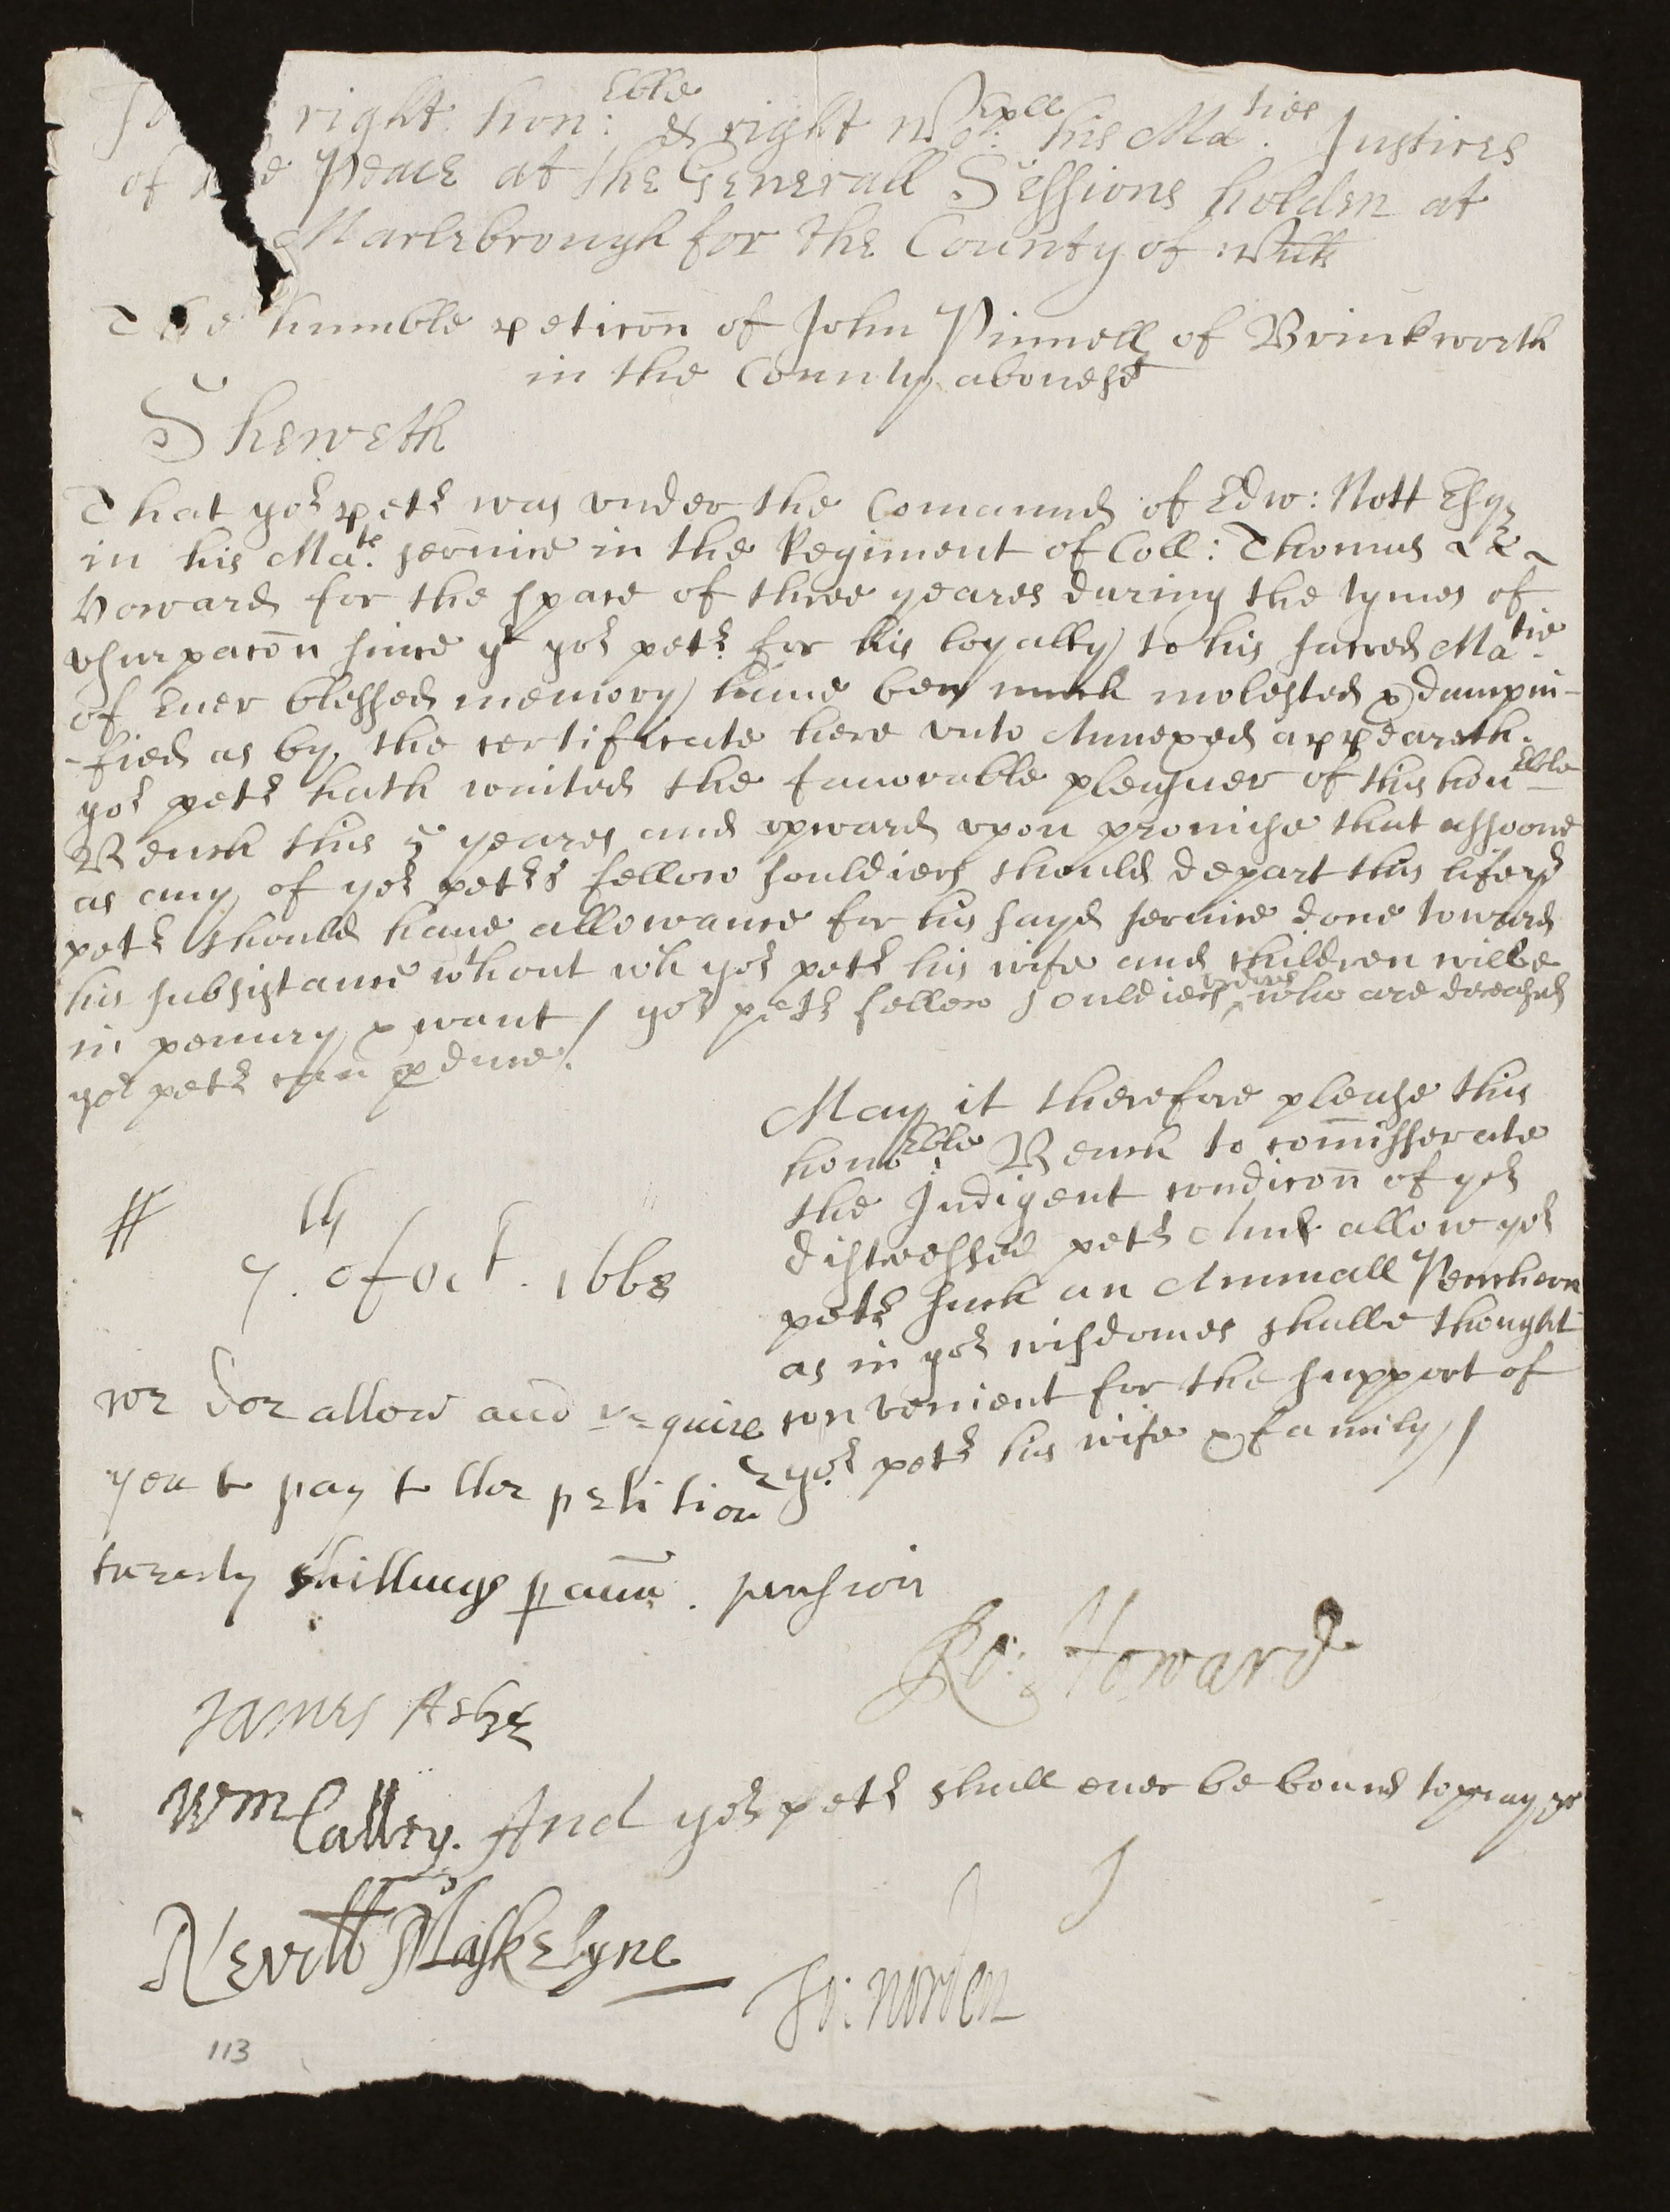 To right hon:Eble & right Wo:rpll his Ma:ties Justices
of the Peace at the Generall Sessions holden at
Marlebrough for the County of Wilts
The humble peticōn of John Pinnell of Brinkworth
in the County abouesd
Sheweth
That yor petr was vnder the Comaund of Edw: Nott Esqr
in his Mate seruice in the Regiment of Coll: Thomas
Howard for the space of three yeares during the tymes of
vsurpacōn since yt yor petr for his loyalty to his sacred Matie
of Euer blessed memory haue ben much molested & dampni-
-fied as by the certificate here vnto Annexed appeareth.
yor petr hath waited the fauorable pleasuer of this honEble
Bench this 5 yeares and vpward vpon promise that assoone
as any of yor petrs fellow souldiers should depart this life yr
petr should haue allowance for his sayd seruice done toward
his subsistance wthout wch yor petr his wife and children wilbe
in penury & want / yor petr fellow souldiers who are deceased
yor petr can pduce /
May it therefore please this
honoEble: Bench to comisserate
the Indigent condicōn of yor
distressed petr And allow yor
petr such an Annuall Penchion
as in yor wisdomes shalbe thought
convenient for the support of
yor petr his wife & family /
7th of Oct. 1668
we doe allow and require
you to pay to the petitioner
twenty shillings p ann. pension
Ro: Howard
James Ashe
Wm Calley.
And yor petr shall euer be bound to pray &c
Nevill Maskelyne
Jo: Norden
113